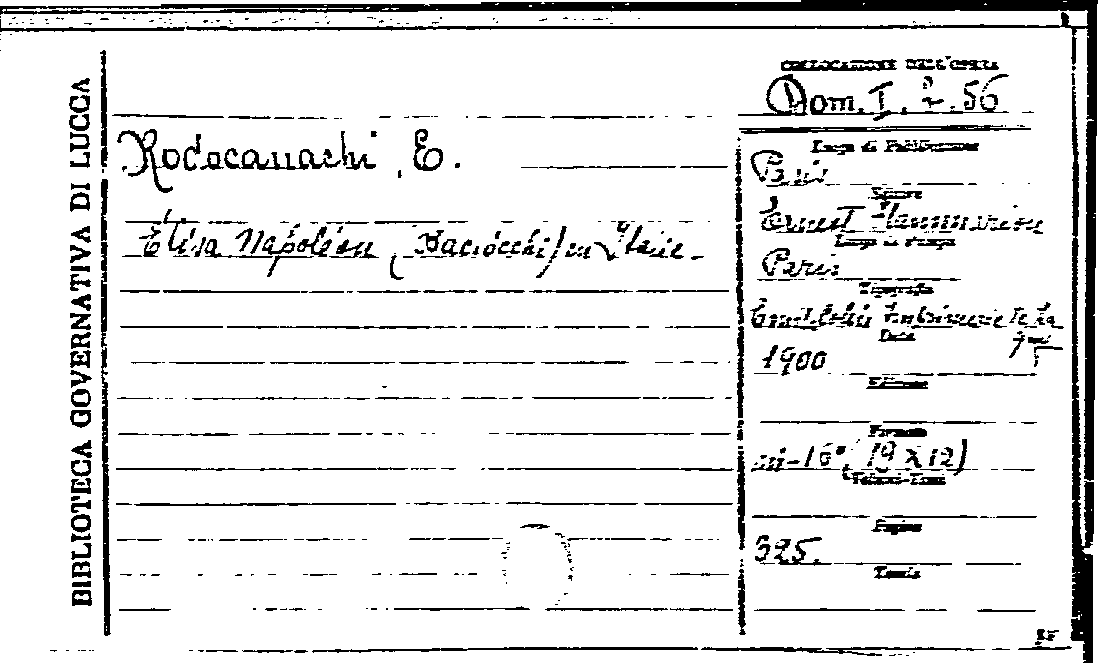 BIBLIOTECA GOVERNATIVA DI LUCCA
COLLOCAZIONE DELL'OPERA
Dom. I. 2. 56
Rodocanachi, E.
Élisa Napoléon (Baciocchi) en Italie.
Luogo di Pubblicazione
Paris
Editore
Ernest Flammarion
Luogo di stampa
Paris
Tipografia
Imprimerie de la
Data
1900
Edizione
Formato
in-16°, (19 x 12)
Volumi-Tomi
Pagine
325.
Tavole